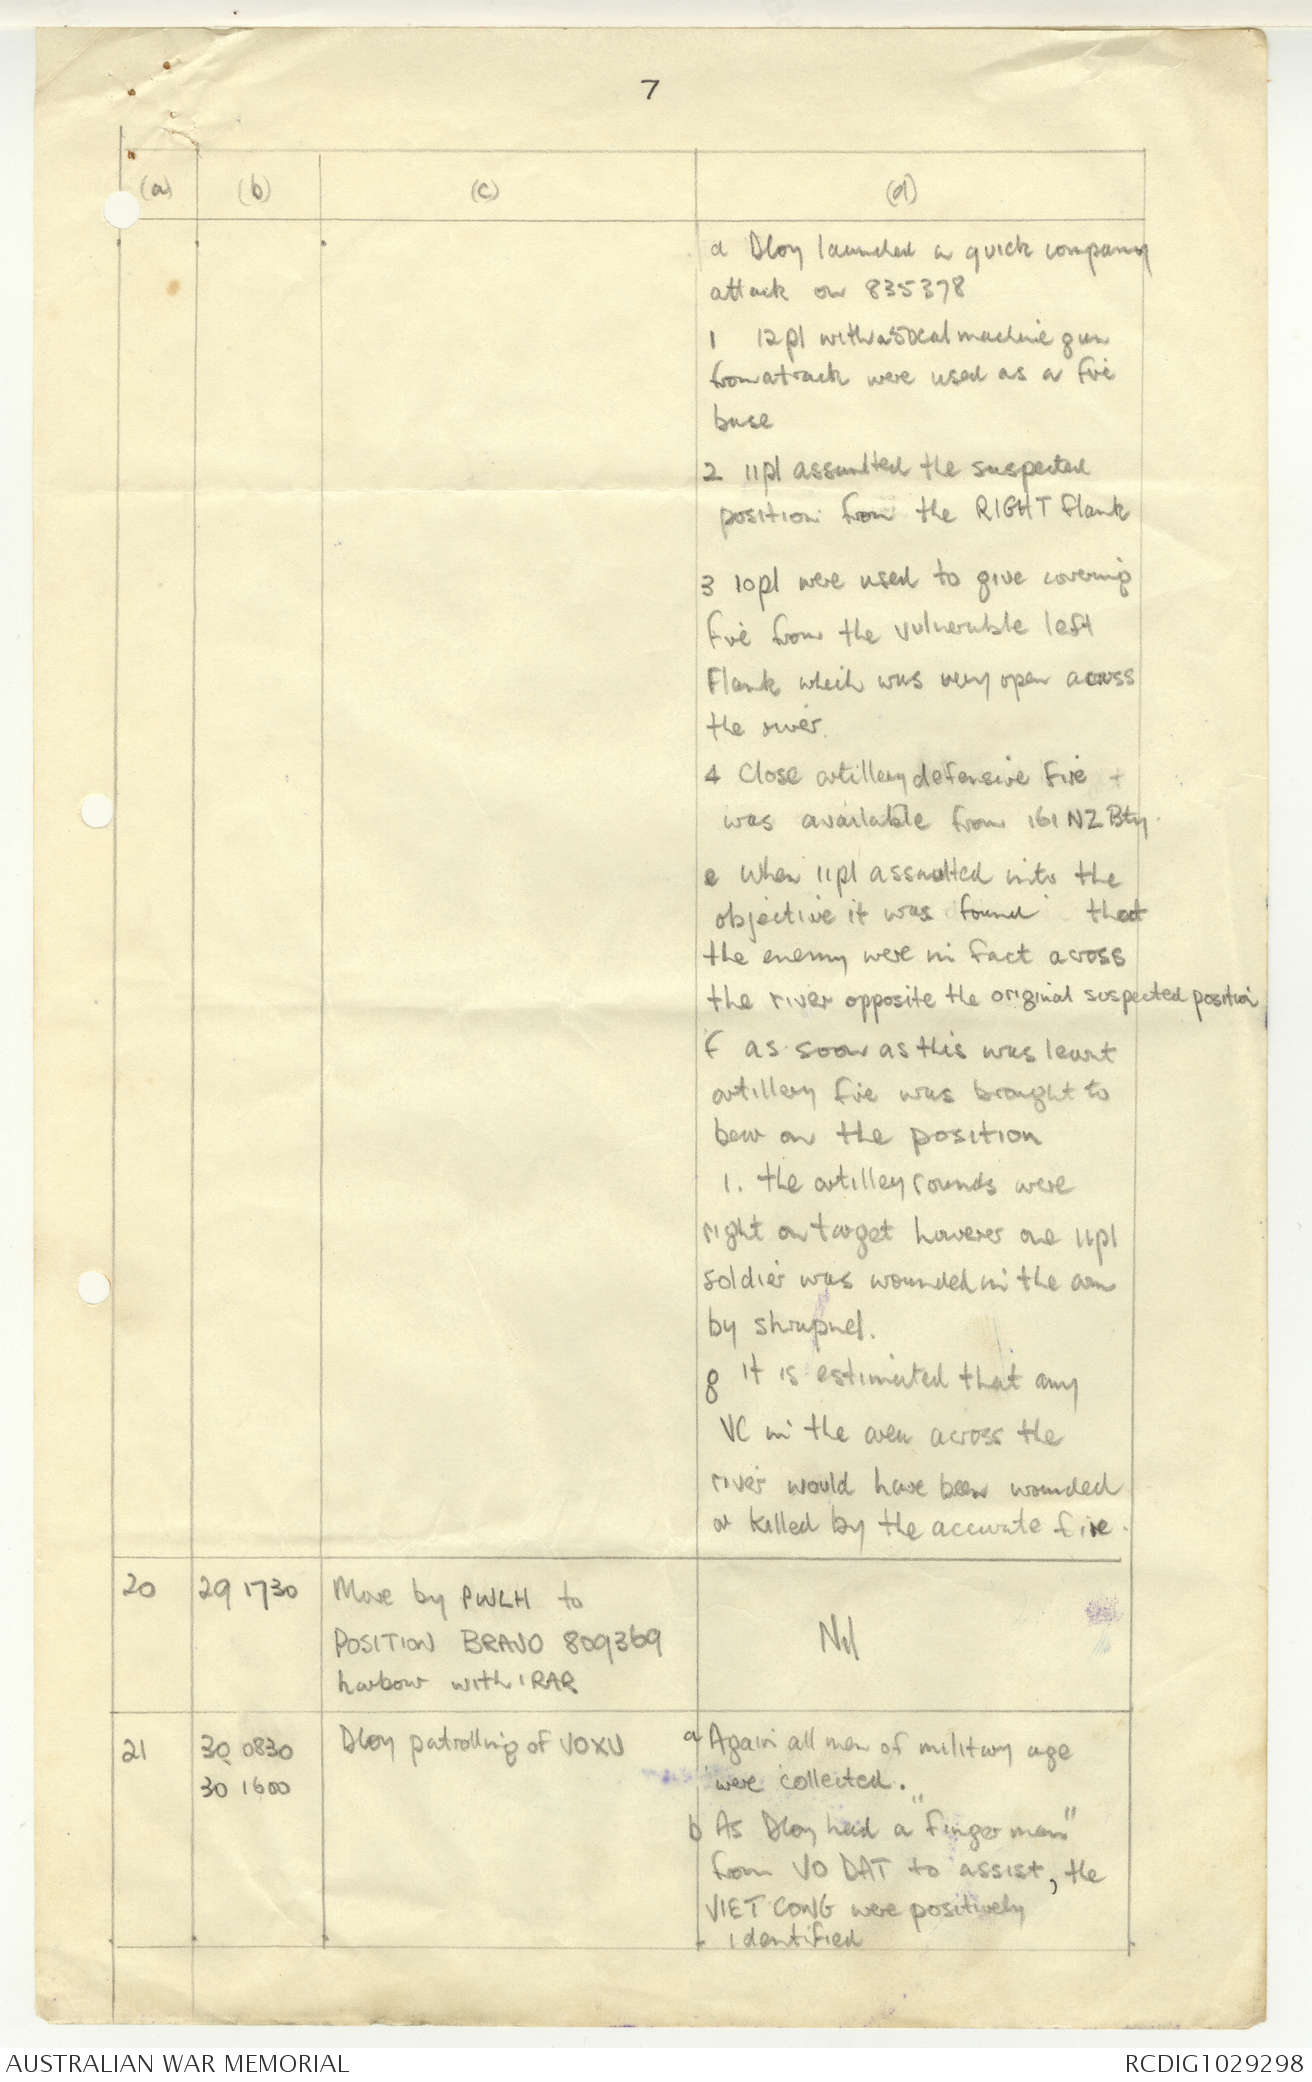 7
(a) (b) (c) (d)
d DCoy launched a quick company
attack on 835378
1 12pl with a 50cal machine gun
from a track were used as a fire
base
2 11pl assaulted the suspected
position from the RIGHT flank
3 10pl were used to give covering
fire from the vulnerable left
flank which was very open across
the river.
4 Close artillery defensive fire
was available from 161 NZ Bty.
e When 11pl assaulted into the
objective it was found that
the enemy were in fact across
the river opposite the original suspected position
f as soon as this was learnt
artillery fire was brought to
bear on the position
1. the artillery rounds were
right on target however one 11pl
soldier was wounded in the arm
by shrapnel.
g it is estimated that any
VC in the area across the
river would have been wounded
or killed by the accurate fire.
20 29 1730 Move by PWLH to
POSITION BRAVO 809369
harbour with 1RAR
Nil
21 30 0830 DCoy patrolling of VOXU
30 1600
a Again all men of military age
were collected.
b As DCoy had a "finger man"
from VO DAT to assist, the
VIET CONG were positively
identified
AUSTRALIAN WAR MEMORIAL
RCDIG1029298